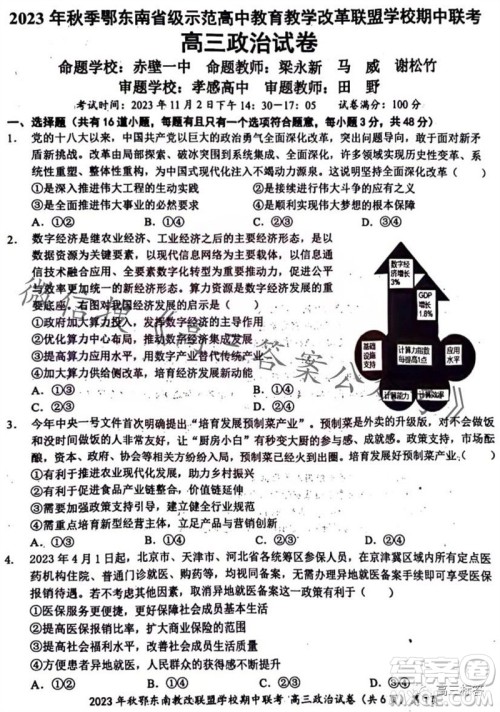 2023 年秋季鄂东南省级示范高中教育教学改革联盟学校期中联考
高三政治试卷
命题学校：赤壁一中 命题教师：梁永新 马 威 谢松竹
审题学校：孝感高中 审题教师：田 野
考试时间：2023 年 11 月 2 日下午 14：30-17：05 试卷满分：100 分
一、选择题（共有 16 道小题，每题只有一个选项符合题意，每小题 3 分，共 48 分）
1. 党的十八大以来，中国共产党以巨大的政治勇气全面深化改革，突出问题导向，敢于面对新矛
盾新挑战。改革由局部探索、破冰突围到系统集成、全面深化，许多领域实现历史性变革、系统
性重塑、整体性重构，为中国式现代化注入不竭的动力源泉。这说明坚持全面深化改革（ ）
①是深入推进伟大工程的生动实践 ②是继续进行伟大斗争的应有之义
③是全面发展伟大事业的必然要求 ④是最终实现伟大梦想的根本保障
A．①② B．①④ C．②③ D．③④
2. 数字经济是继农业经济、工业经济之后的主要经济形态，是以
数据资源为关键要素，以现代信息网络为主要载体，以信息通
信技术融合应用、全要素数字化转型为重要推动力，促进公平
与效率更加统一的新经济形态。算力资源是数字经济发展的重
要底座。右图对我国经济发展的启示是（ ）
①政府加大算力投入，打造经济发展的强大引擎
②优化算力中心布局，推动数字经济集成发展
③提高算力应用水平，助力数字经济产业发展
④加大算力供给侧改革，实现经济高质量发展
A．①③ B．①④ C．②③ D．②④
数字经
济增长
3‰
GDP
增长
1.8‰
基础
设施
支持
计算力指数
每提高1点
应用
水平
计算能力
计算效率
3. 今年中央一号文件首次明确提出“培育发展预制菜产业”。预制菜是外卖的升级版，对不会做饭和
没时间做饭的人非常友好，让“厨房小白”有秒变大厨的潜质。由于极具潜力的消费市场，电商拓展、
酿、资本、政府、各界関注等，预制菜已经火到出圈。培育发展预制菜产业（ ）
①有利于推进农业现代化发展，助力乡村振兴
②有利于促进食品产业链整合，带动产业升级
④需重点培育新支柱产业，推动经济增长
A．①② B．①③ C．②④ D．③④
4. 2023 年 4 月 1 日起，北京市、天津市、河北省各统筹区参保人员，在京津冀区域内所有定点医
药机构住院、普通门诊就医、购药等，均视同备案，无需办理异地就医备案手续即可享受医保报
销待遇。取消异地就医备案这一政策有利于（ ）
①医保服务更便捷，更好保障居民健康
②提高了医保报销比例，扩大医保的保障范围
A．①③ B．①④ C．②③ D．②④
2023 年秋鄂东南教改联盟学校期中联考 高三政治试卷（共 6 页）